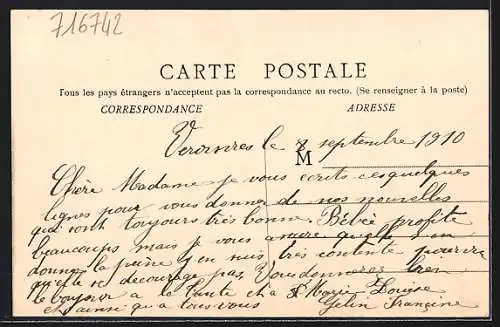 716742
CARTE POSTALE
Tous les pays étrangers n'acceptent pas la correspondance au recto. (Se renseigner à la poste)
CORRESPONDANCE ADRESSE
le 8 septembre 1910
M
Chère Madame je vous écrits ces quelques
lignes pour vous donner de nos nouvelles
qui sont toujours très bonne. Bébé profite
beaucoups mais je vous assure quelle s'en
donne la peine j'en suis très contente pourvu
qu'elle se decourage pas. Vous donnerez bien
le bonjour a la tante et a Marie Louise
et ainsi qu'a tous vous Gelin Francine